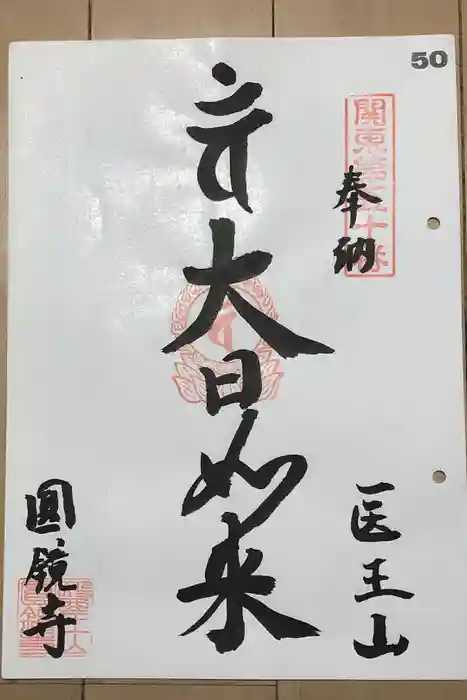 50
関東第五十番
奉納
医王山
大日如来
圓鏡寺